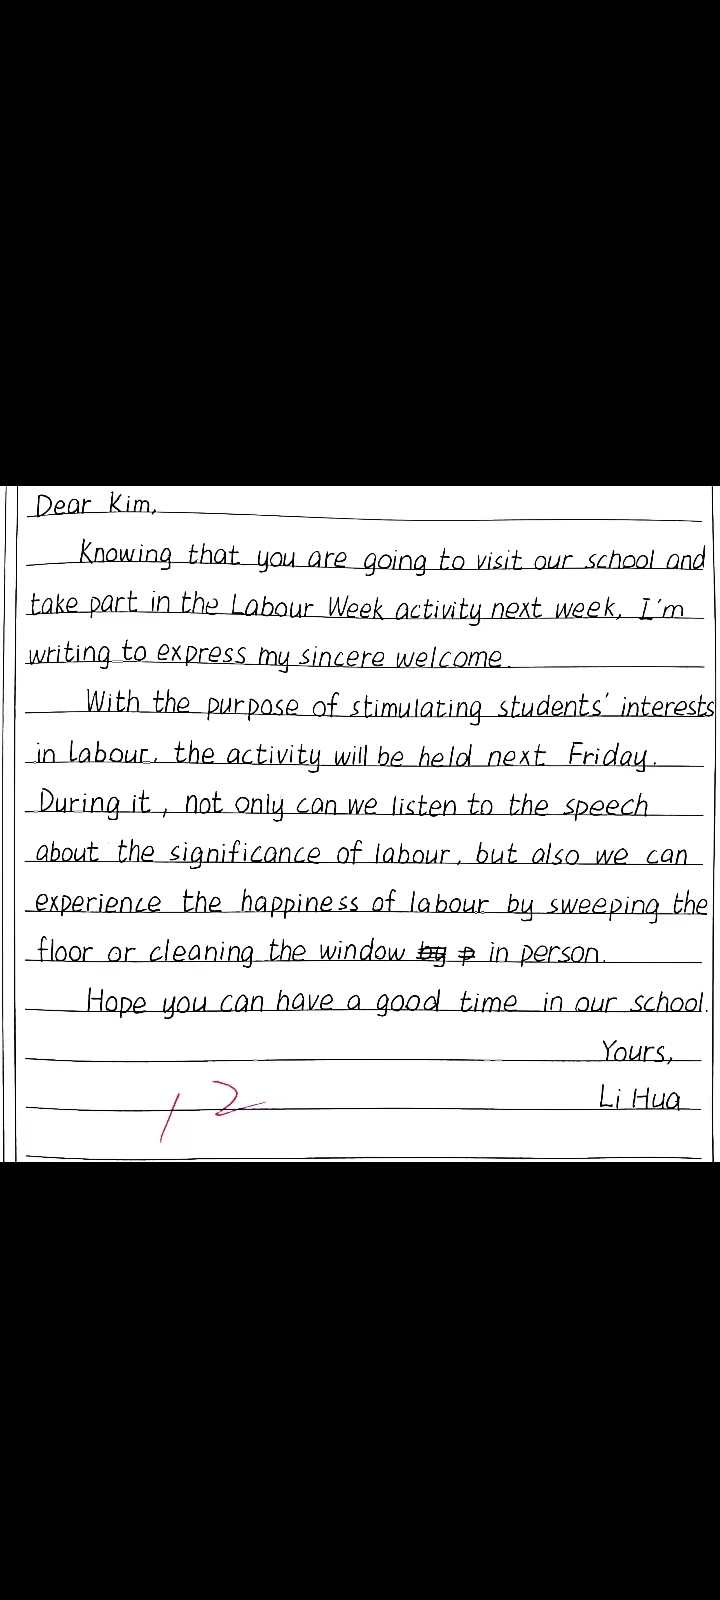 Dear Kim,
Knowing that you are going to visit our school and
take part in the Labour Week activity next week, I'm
writing to express my sincere welcome.
With the purpose of stimulating students' interests
in labour, the activity will be held next Friday.
During it, not only can we listen to the speech
about the significance of labour, but also we can
experience the happiness of labour by sweeping the
floor or cleaning the window in person.
Hope you can have a good time in our school.
Yours,
Li Hua
12